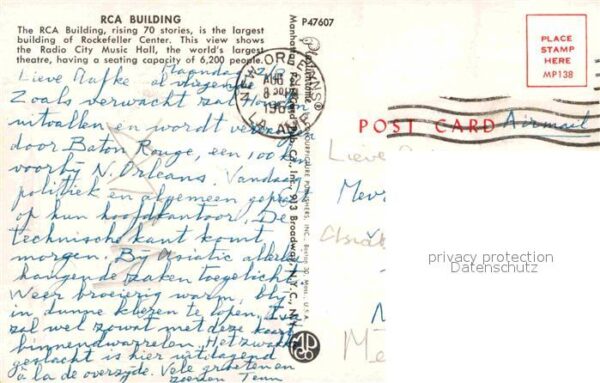 RCA BUILDING
The RCA Building, rising 70 stories, is the largest
building of Rockefeller Center. This view shows
the Radio City Music Hall, the world's largest
theatre, having a seating capacity of 6,200 people.
Maandag
Lieve Mafke al vliegende
Zoals verwacht zal
uitvallen en wordt ver
door Baton Rouge, een 100 km
voorbij N. Orleans. Vandaag
politiek en algemeen gepraat
op hun hoofdkantoor. De
technische kant komt
morgen. Bij Asiatic allerlei
hangende zaken toegelicht.
Weer broeierig warm, blij
in dunne kleren te lopen.
zal wel zowat met deze kaart
binnendwarrelen. Het
geslacht is hier uitdagend
à la de overzijde. Vele groeten en
zoenen Teun
P47607
Plastichrome
Manhattan Post Card Pub. Co., Inc., 913 Broadway, N.Y.C., N.Y.
NEW ORLEANS
AUG
8 30 PM
196
LA.
PLACE
STAMP
HERE
MP138
POST CARD
Airmail
Lieve
Mev.
privacy protection
Datenschutz